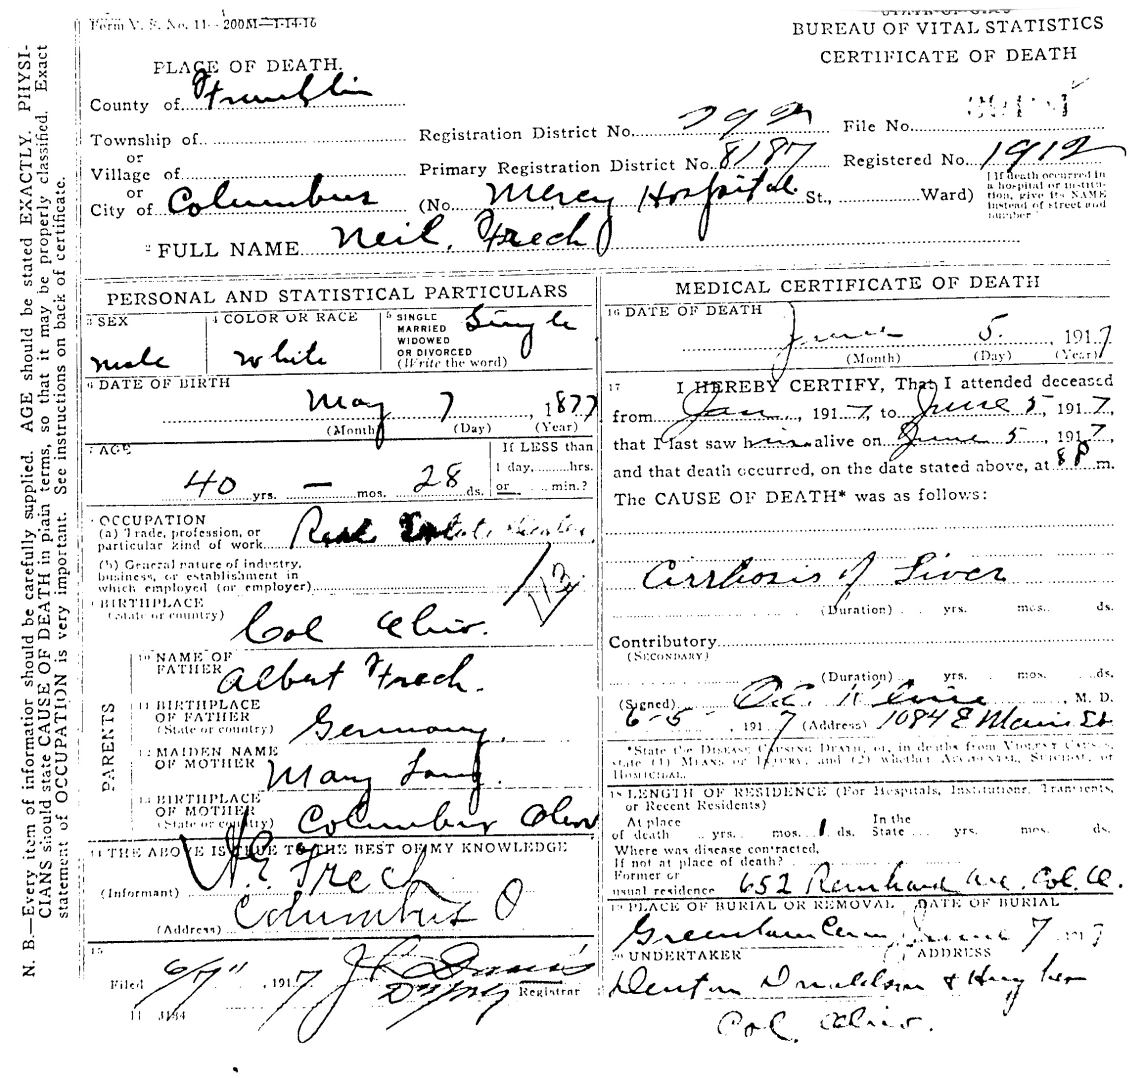 Form V. S. No. 11—200M—1-14-16
STATE OF OHIO
BUREAU OF VITAL STATISTICS
CERTIFICATE OF DEATH
PLACE OF DEATH.
County of Franklin
Township of
or
Village of
or
City of Columbus
Registration District No. 392
File No.
Primary Registration District No. 8187
Registered No. 1912
(No. Mercy Hospital St., Ward)
[If death occurred in a hospital or institution, give its NAME instead of street and number]
2 FULL NAME Neil Frech
PERSONAL AND STATISTICAL PARTICULARS
3 SEX
male
4 COLOR OR RACE
White
5 SINGLE MARRIED WIDOWED OR DIVORCED (Write the word)
Single
6 DATE OF BIRTH
May 7, 1877
(Month) (Day) (Year)
7 AGE
40 yrs. — mos. 28 ds.
If LESS than 1 day, hrs. or min.?
8 OCCUPATION
(a) Trade, profession, or particular kind of work Real Estate Dealer
(b) General nature of industry, business, or establishment in which employed (or employer)
113
9 BIRTHPLACE (State or country)
Col Ohio.
PARENTS
10 NAME OF FATHER
Albert Frech.
11 BIRTHPLACE OF FATHER (State or country)
Germany.
12 MAIDEN NAME OF MOTHER
Mary Lang.
13 BIRTHPLACE OF MOTHER (State or country)
Columbus Ohio
14 THE ABOVE IS TRUE TO THE BEST OF MY KNOWLEDGE
(Informant) Frech
(Address) Columbus O
15
Filed 6/7", 1917
Registrar
11 3184
MEDICAL CERTIFICATE OF DEATH
16 DATE OF DEATH
June 5, 1917
(Month) (Day) (Year)
17 I HEREBY CERTIFY, That I attended deceased
from Jan, 1917, to June 5, 1917,
that I last saw him alive on June 5, 1917,
and that death occurred, on the date stated above, at 8 P m.
The CAUSE OF DEATH* was as follows:
Cirrhosis of Liver
(Duration) yrs. mos. ds.
Contributory
(SECONDARY)
(Duration) yrs. mos. ds.
(Signed) M. D.
6-5-, 1917 (Address) 1084 E Main St
*State the DISEASE CAUSING DEATH, or, in deaths from VIOLENT CAUSES, state (1) MEANS OF INJURY, and (2) whether ACCIDENTAL, SUICIDAL, or HOMICIDAL.
18 LENGTH OF RESIDENCE (For Hospitals, Institutions, Transients, or Recent Residents)
At place of death yrs. mos. 1 ds. In the State yrs. mos. ds.
Where was disease contracted, If not at place of death?
Former or usual residence 652 Reinhard Ave. Col. O.
19 PLACE OF BURIAL OR REMOVAL
Greenlawn Cem
DATE OF BURIAL
June 7, 1917
20 UNDERTAKER
Denton Donaldson & Hughes
ADDRESS
Col. Ohio.
N. B.—Every item of information should be carefully supplied. AGE should be stated EXACTLY. PHYSI-
CIANS should state CAUSE OF DEATH in plain terms, so that it may be properly classified. Exact
statement of OCCUPATION is very important. See instructions on back of certificate.